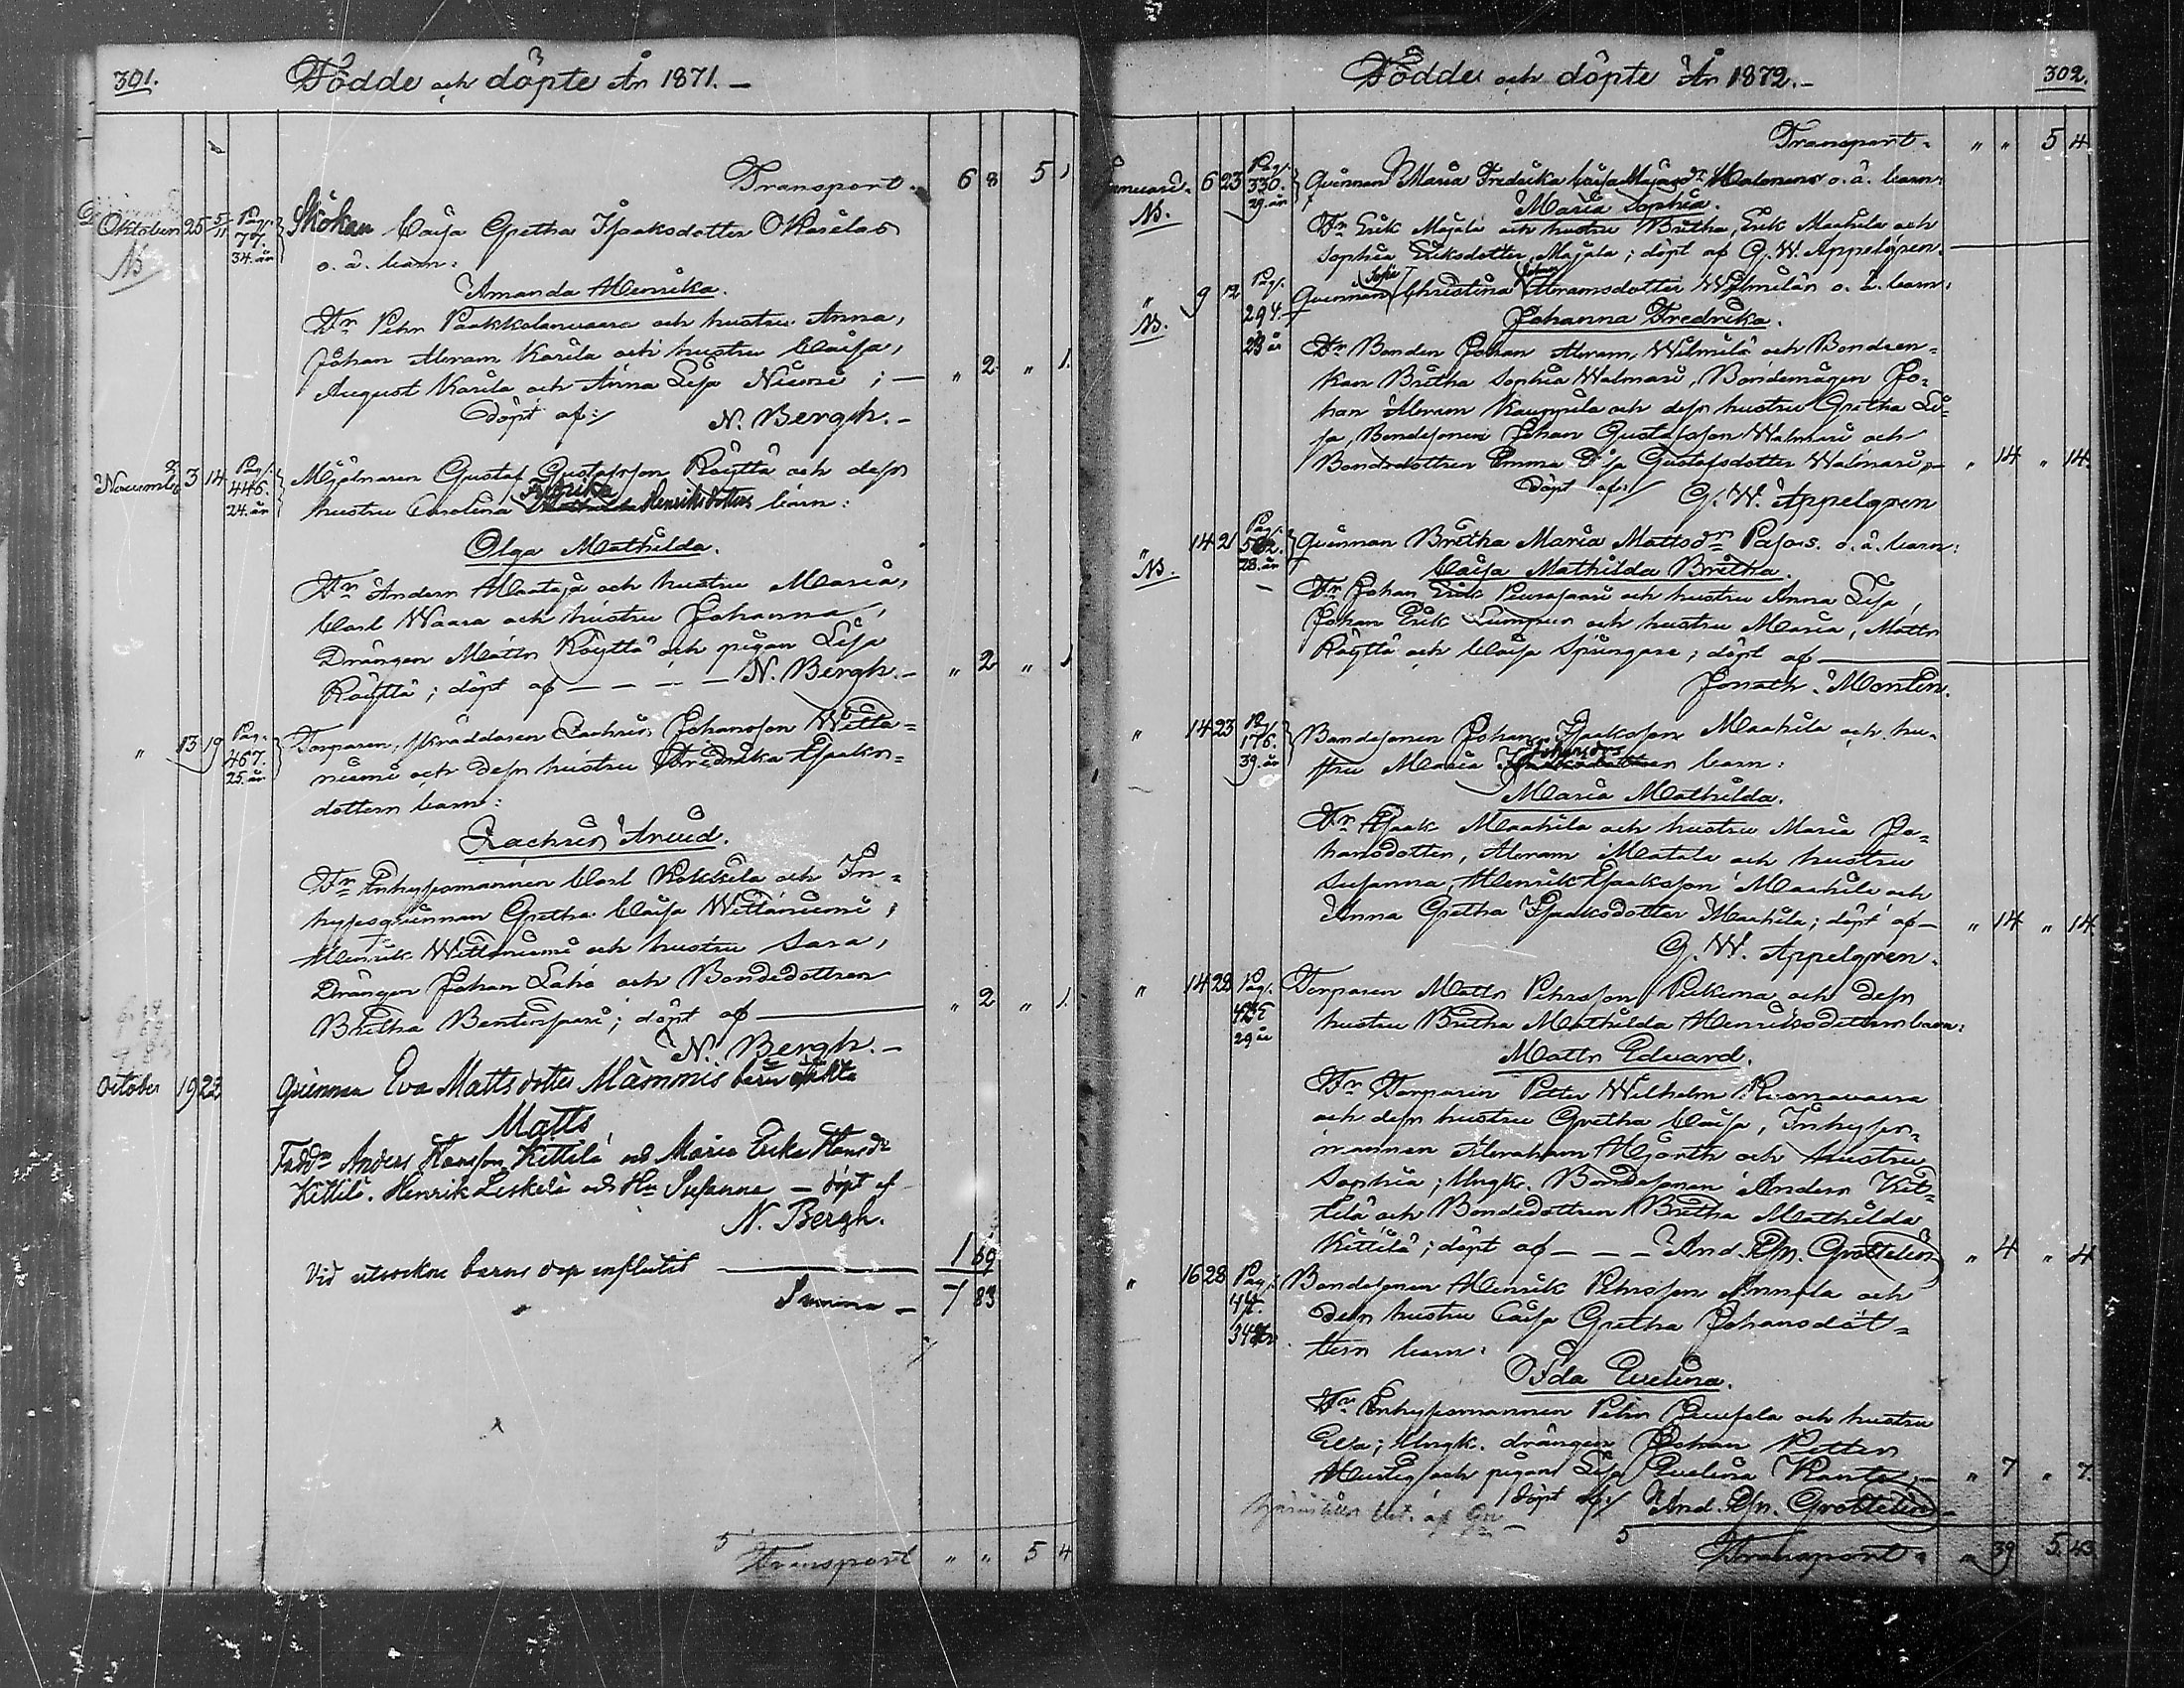 301.
Födde och döpte År 1871.–
Transport. 6 8 5 1
Oktober 25 5/11 Pag. 77. 34. år Skökan Caisa Gretha Isaksdotter Karilas
NB o. ä. barn:
Amanda Henrika.
Fr Pehr Paakkolanvaara och hustru Anna,
Johan Abram Karila och hustru Caisa,
August Karila och Anna Lisa Niemi ; — „ 2 „ 1.
döpt af:/ N. Bergh.–
November 3 14 Pag. 446. 24. år Mjölnaren Gustaf Gustafsson Röyttä och dess
Fredrika
hustru Carolina Henriksdotters barn:
Olga Mathilda.
Fr Anders Maataja och hustru Maria,
Carl Waara och hustru Johanna,
Drängen Matts Röyttä och pigan Lisa
Röyttä ; döpt af – – – – N. Bergh.– „ 2 „ 1
„ 13 19 Pag. 467. 25. år Torparen, skräddaren Zachris Johansson Witta=
niemi och dess hustru Fredrika Isaks=
dotters barn:
Zachris Arvid.
Fr Inhysesmannen Carl Kokkila och In=
hysesqvinnan Gretha Caisa Wittaniemi ,
Henrik Wittaniemi och hustru Sara,
Drängen Johan Laho och Bondedottren
Bretha ; döpt af — „ 2 „ 1.
N. Bergh.–
October 19 23 Qvinnan Eva Mattsdotter Mämmis barn
Matts
Fadd Anders Hansson Kittilä och Maria Erika Hansdr
Kittilä. Henrik Leskelä och Hu Susanna — döpt af
N. Bergh.
Vid utsockne barns dop influtit — 1 69
Summa – 7 83
5 Transport „ „ 5 4
Födde och döpte År 1872.–
302.
Transport. „ „ 5 4
Januari. 6 23 Pag. 330. 29. år Qvinnan Maria Fredrika o. ä. barn:
NB. Maria Sophia.
Fr Erik Majala och hustru Bretha, Erik Maahila och
Sophia Eriksdotter Majala ; döpt af G. W. Appelgren.
„ 9 12 Pag. 294. 23 år Qvinnan Christina Abramsdotter Wilmilä o. ä. barn:
NB. Johanna Fredrika.
Fr Bonden Johan Abram Wilmilä och Bondeen=
kan Bretha Sophia Walmari, Bondemågen Jo=
han Abram Kauppila och dess hustru Gretha Li=
sa, Bondesonen Johan Gustafsson Walmari och
Bondedottren Emma Gustafsdotter Walmari „ 14 „ 14.
döpt af:/ G. W. Appelgren
„ 14 21 Pag. 28. år Qvinnan Bretha Maria Mattsdr o. ä. barn:
NB. Caisa Mathilda Bretha.
Fr Johan Erik Peurasaari och hustru Anna Lisa,
Johan Erik och hustru Maria, Matts
Röyttä och Caisa Springare ; döpt af —
Jonath. Montin.
„ 14 23 Pag. 176. 39. år Bondesonen Johan Isaksson Maahila och hu=
Johansdrs
stru Maria barn:
Maria Mathilda.
Fr Isaak Maahila och hustru Maria Jo=
hansdotter, Abram Matala och hustru
Susanna, Henrik Isaksson Maahila och
Anna Gretha Isaksdotter Maahila ; döpt af – „ 14 „ 14
G. W. Appelgren.
„ 14 22 Pag. 29 år Torparen Matts Pehrsson och dess
hustru Bretha Mathilda Henriksdotters barn:
Matts Edvard.
Fr Torparen Petter Wilhelm
och dess hustru Gretha Caisa, Inhyses=
mannen Abraham Hjorth och hustru
Sophia ; Ungk. Bondesonen Anders Kit=
tilä och Bondedottren Bretha Mathilda
Kittilä ; döpt af – – – And. Grottelin „ 4 „ 4
„ 16 28 Pag. 34 år Bondesonen Henrik Pehrsson Annala och
dess hustru Caisa Gretha Johansdot=
ters barn:
Ida Evelina.
Fr Inhysesmannen Pehr Juusola och hustru
Elsa ; Ungk. drängen Johan Petter
och pigan Lisa Evelina „ 7 „ 7.
döpt af:/ And. Grottelin
5 Transport. „ 39 5. 43